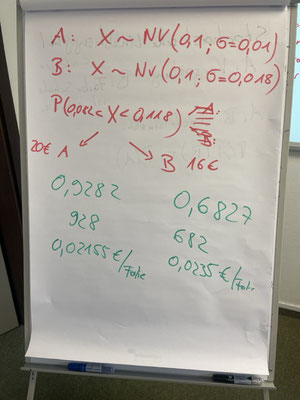 A: X ~ NV(0,1; σ=0,01)
B: X ~ NV(0,1; σ=0,018)
P(0,082 < X < 0,118) A:
B:
20€ A B 16€
0,9282 0,6827
928 682
0,02155€/Folie 0,0235€/Folie